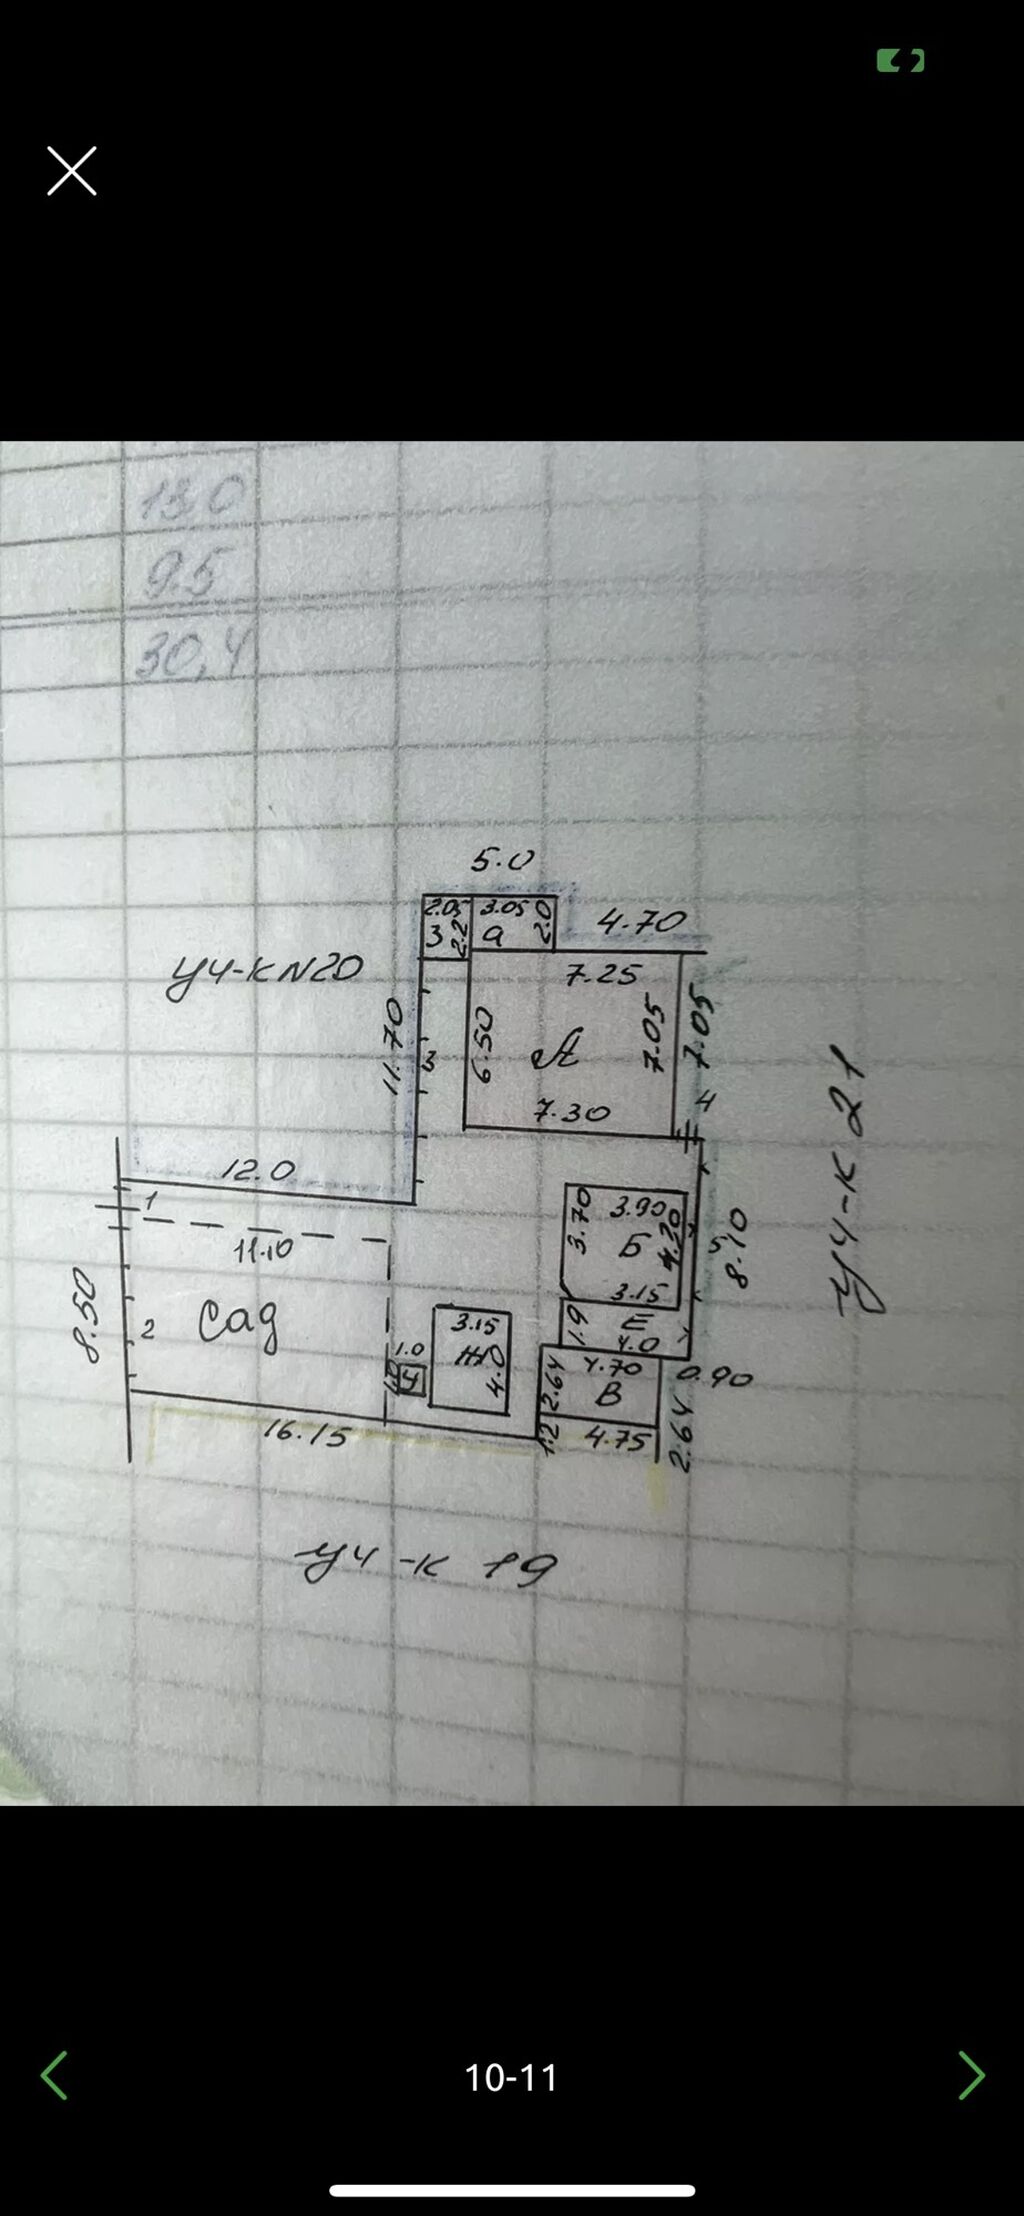 13.0
9.5
30,4
5.0
2.05 3.05 2.0
3 2.2 а
4.70
уч-к N20
7.25
11.70
3
6.50
А
7.05
7.05
7.30
4
уч-к 21
12.0
1
11.10
3.70
3.90
Б
4.20
5
8.10
3.15
8.50
2
Сад
1.0
1.0
У
3.15
Ж
4.0
1.9
Е
4.0
2.64
4.70
В
0.90
2.64
16.15
1.2
4.75
уч-к 19
10-11